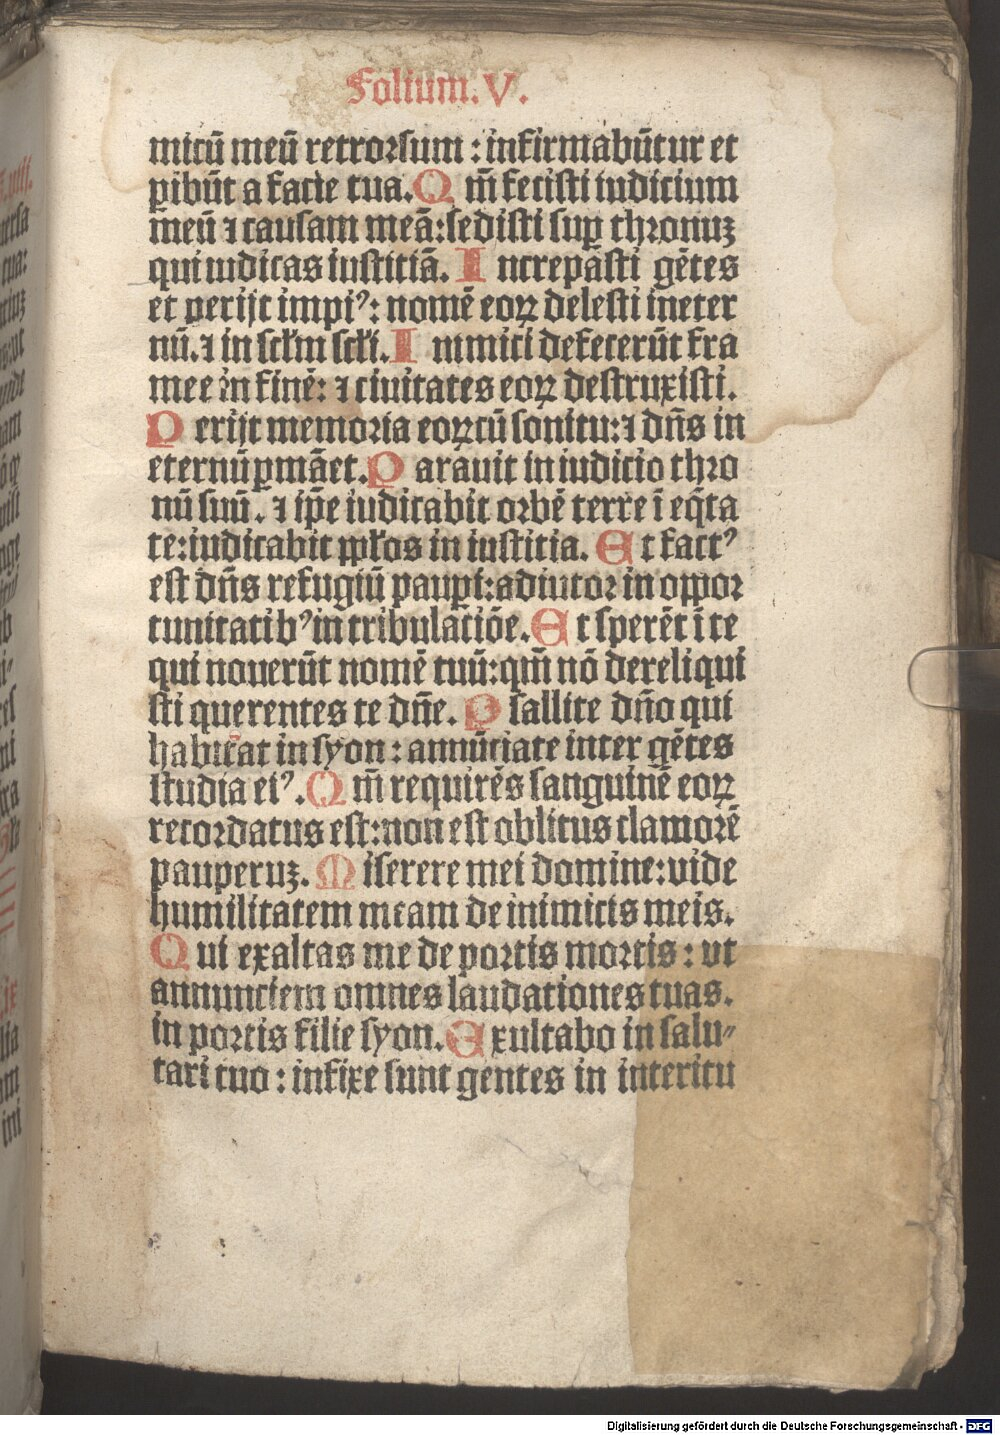 Folium. V.
micū meū retrorsum : infirmabūtur et
ꝑibūt a facie tua. Qm̄ fecisti iudicium
meū ⁊ causam meā: sedisti suꝑ thronuꝫ
qui iudicas iustitiā. Increpasti gētes
et perijt impiꝰ: nomē eoꝝ delesti ineter
nū. ⁊ in scłm scłi. Inimici defecerūt fra
mee in finē: ⁊ ciuitates eoꝝ destruxisti.
Perijt memoria eoꝝ cū sonitu: ⁊ dn̄s in
eternū ꝑmāet. Parauit in iudicio thro
nū suū. ⁊ ip̄e iudicabit orbē terre ī eq̄ta
te: iudicabit ppłos in iustitia. Et factꝰ
est dn̄s refugiū pauꝑi: adiutor in oppor
tunitatibꝰ in tribulatiōe. Et sperēt ī te
qui nouerūt nomē tuū: qm̄ nō dereliqui
sti querentes te dn̄e. Psallite dn̄o qui
habitat in syon : annūciate inter gētes
studia eiꝰ. Qm̄ requirēs sanguinē eoꝝ
recordatus est: non est oblitus clamorē
pauperuꝫ. Miserere mei domine: vide
humilitatem meam de inimicis meis.
Qui exaltas me de portis mortis : vt
annunciem omnes laudationes tuas.
in portis filie syon. Exultabo in salu⸗
tari tuo : infixe sunt gentes in interitu
Digitalisierung gefördert durch die Deutsche Forschungsgemeinschaft - DFG